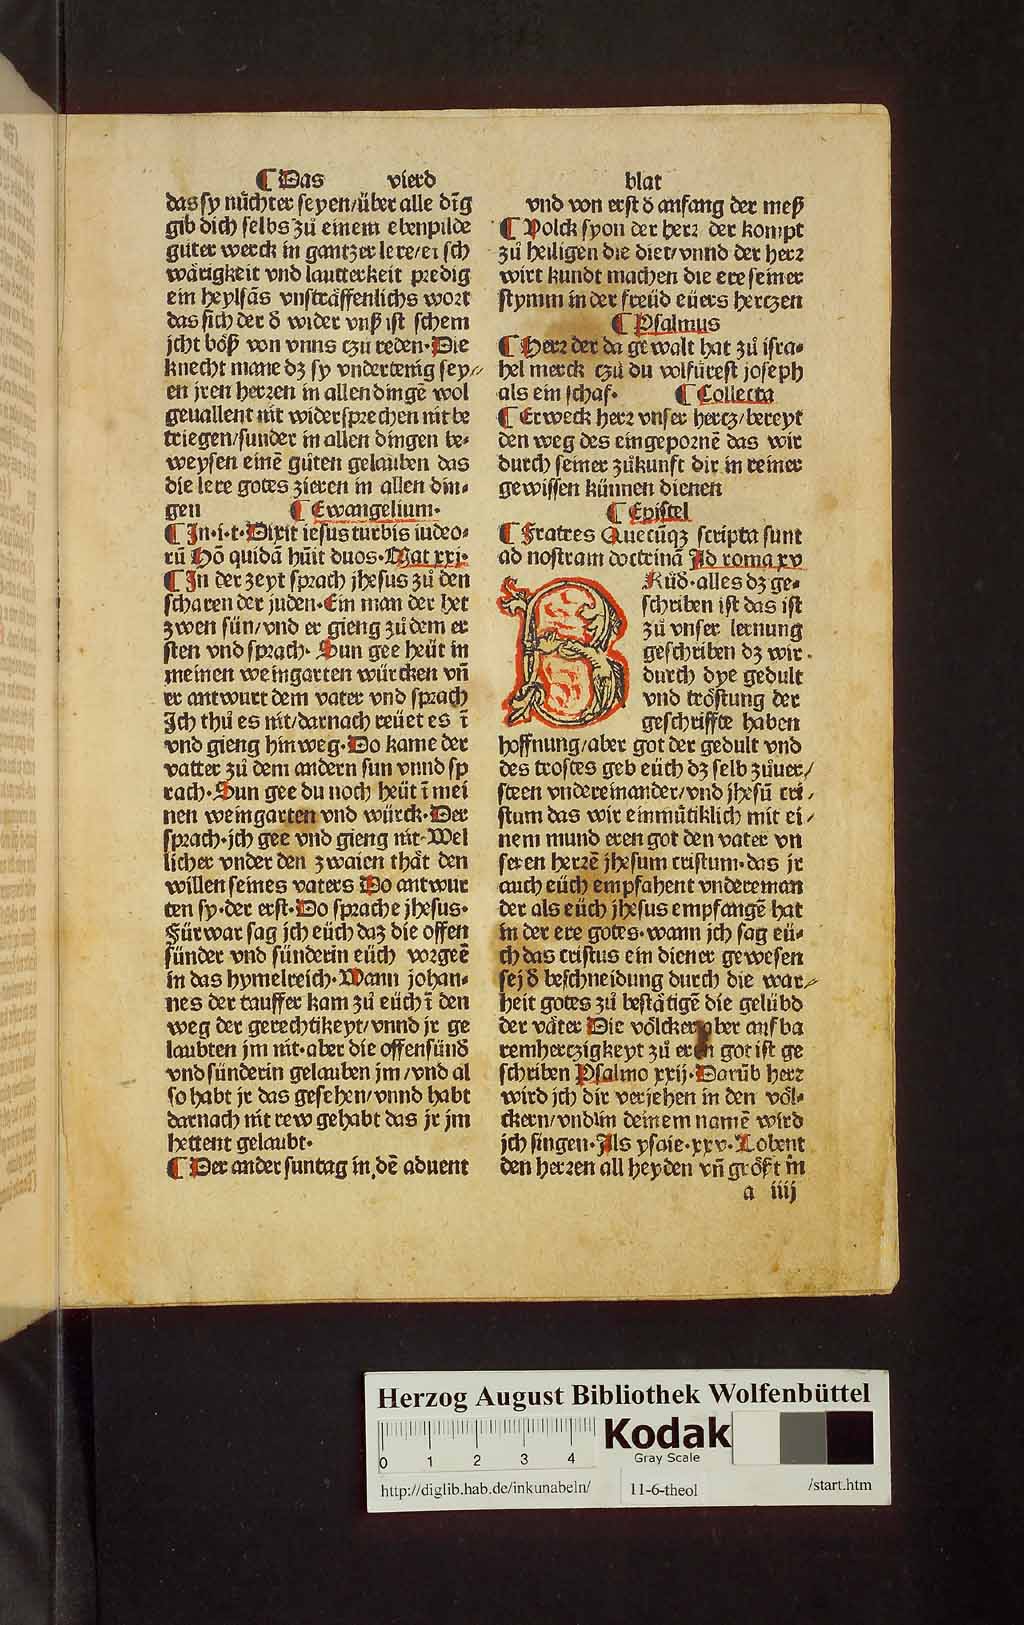 ¶ Das vierd blat
das sy nuͤchter seyen/über alle dīg
gib dich selbs zuͦ einem ebenpilde
guͦter werck in gantzer lere/ersch
wärigkeit vnd lautterkeit predig
ein heylsās vnsträffenlichs wort
das sich der ð wider vnß ist schem
jcht böß von vnns czuͦ reden·Die
knecht mane dz sy vndertenig sey⸗
en jren herzen in allen dingē wol
geuallent nit widersprechen nit be
triegen/sunder in allen dingen be⸗
weysen einē guͦten gelauben das
die lere gotes zieren in allen din⸗
gen ¶ Ewangelium·
¶ In·i·t·Dixit iesus turbis iudeo⸗
rū Hō quidā hūit duos·Mat xxi·
¶ In der zeyt sprach jhesus zuͦ den
scharen der juden·Ein man der het
zwen sün/vnd er gieng zuͦ dem er
sten vnd sprach· Sun gee heüt in
meinen weingarten würcken vn̄
er antwurt dem vater vnd sprach
Ich thuͦ es nit/darnach reüet es ī
vnd gieng hinweg·Do kame der
vatter zuͦ dem andern sun vnnd sp
rach·Sun gee du noch heüt ī mei
nen weingarten vnd würck·Der
sprach·jch gee vnd gieng nit·Wel
licher vnder den zwaien thät den
willen seines vaters Do antwur
ten sy·der erst·Do sprache jhesus·
Fürwar sag jch eüch daz die offen
sünder vnd sünderin eüch vorgeē
in das hymelreich·Wann johan⸗
nes der tauffer kam zuͦ eüch ī den
weg der gerechtikeyt/vnnd jr ge
laubten jm nit·aber die offensünð
vnd sünderin gelauben jm/vnd al
so habt jr das gesehen/vnnd habt
darnach nit rew gehabt das jr jm
hettent gelaubt·
¶ Der ander suntag in dē aduent
vnd von erst ð anfang der meß
¶ Volck syon der herz der kompt
zuͦ heiligen die diet/vnnd der herz
wirt kundt machen die ere seiner
stymm in der freüd eüers hertzen
¶ Psalmus
¶ Herz der da gewalt hat zuͦ isra⸗
hel merck czuͦ du volfürest joseph
als ein schaf· ¶ Collecta
¶ Erweck herz vnser hertz/bereyt
den weg des eingepornē das wir
durch seiner zuͦkunft dir in reiner
gewissen künnen dienen
¶ Epistel
¶ Fratres Quecūqz scripta sunt
ad nostram doctrinā Ad roma xv
BRüd·alles dz ge⸗
schriben ist das ist
zuͦ vnser lernung
geschriben dz wir
durch dye gedult
vnd tröstung der
geschriffte haben
hoffnung/aber got der gedult vnd
des trostes geb eüch dz selb zuͦuer⸗
steen vndereinander/vnd jhesū cri⸗
stum das wir einmuͤtiklich mit ei⸗
nem mund eren got den vater vn
seren herzē jhesum cristum·das jr
auch eüch empfahent vndereinan
der als eüch jhesus empfangē hat
in der ere gotes·wann jch sag eü⸗
ch das cristus ein diener gewesen
sej ð beschneidung durch die war⸗
heit gotes zuͦ bestätigē die gelübð
der väter Die völcker aber auf ba
remhertzigkeyt zuͦ eren got ist ge
schriben Psalmo xxij·Darūb herz
wird jch dir verjehen in den völ⸗
ckern/vnd in deinem namē wird
jch singen·Als ysaie·xxv·Lobent
den herzen all heyden vn̄ größt in
a iiij
Herzog August Bibliothek Wolfenbüttel
0 1 2 3 4
Kodak
Gray Scale
http://diglib.hab.de/inkunabeln/ 11-6-theol /start.htm